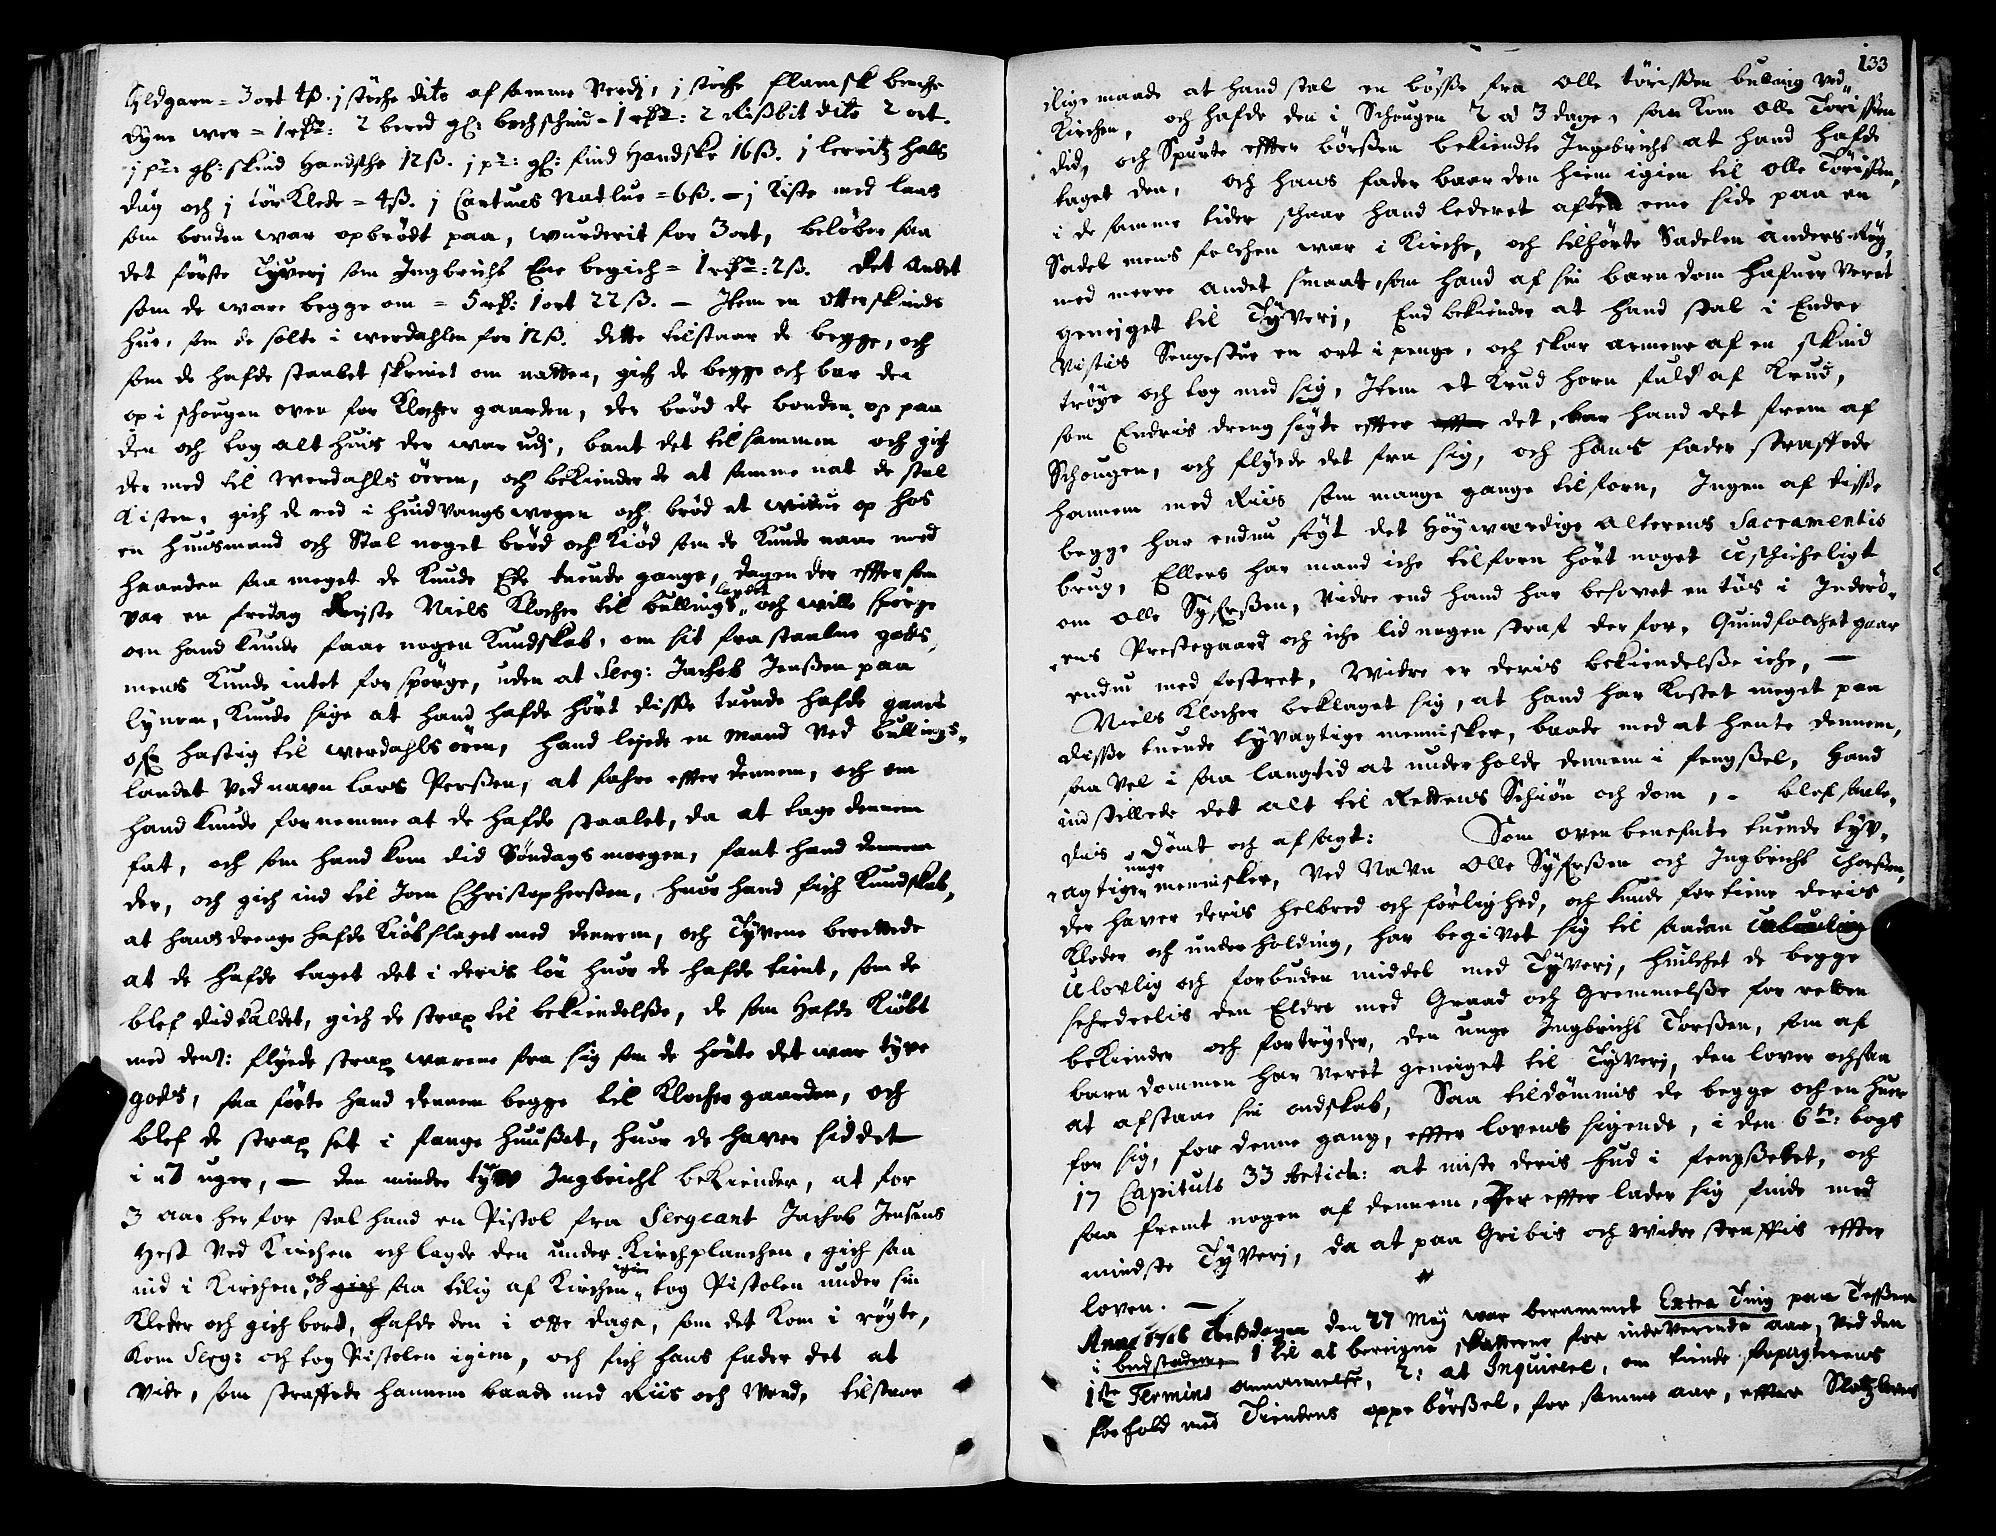 Uldgarn = 3 ort 4 ß. j stöche dito af samme Verdj, j stöche flamsk benche
dyne wer = 1 rdr: 2 bered gl: bochschind = 1 rdr: 2 Rißbit dito 2 ort.
j pr: gl: skind Handsche 12 ß. j pr: gl: find Handske 16 ß. j lerritz hals
dug och j tör Klede = 4 ß. j Cartuns Natlue = 6 ß. – j Kiste med laas
som bonden war opbrödt paa, wurderit for 3 ort, beløber saa
det förste Tyverj som Ingbricht Ene begich = 1 rdr: 2 ß. det Andet
som de ware begge om = 5 rdr: 1 ort 22 ß. – Item en otterskinds
hue, som de solte i werdahlen for 12 ß. dette tilstaar de begge, och
som de hafde staalet skrinet om natten, gich de begge och bar den
op i schougen oven for Klocher gaarden, der brød de bonden op paa
den och tog alt huis der war udj, bant det tilsammen och gich
der med til Werdahls öeren, och bekiender de at samme nat de stal
Kisten, gich de ned i Huudvangs wegen och brød et windue op hos
en huusmand och Stal noget brød och Kiöd som de Kunde naae med
haanden saa meget de Kunde Ede tuende gange, dagen der effter som
var en fredag Reiste Niels Klocher til bullings landet och wille spörge
om hand kunde faae nogen Kundskab, om sit fra staalne gods,
mens Kunde intet for spörge, uden at Serg: Jachob Jenßen paa
lynem, Kunde sige at hand hafde hört disse tuende hafde gaaet
ofr hastig til werdahls ören, hand lejede en Mand ved bullings-
landet ved navn Lars Perßen, at fahre effter dennem, och om
hand kunde fornemme at de hafde staalet, da at tage dennem
fat, och som hand kom did Söndags morgen, fant hand dennem
der, och gich ind til Joen Christopherßen, huor hand fich Kundskab,
at hans drenge hafde Kiöbslaget med dennem, och Tyvene berettede
at de hafde taget det i deris lön huor de hafde tient, som de
blef did kaldet, gich de strax til bekiendelße, de som Hafde Kiöbt
med dem: flyede strax warene fra sig som de hörte det war tyve
gods, saa förte hand dennem begge til Klocher gaarden, och
blef de strax set i fange huußet, huor de haver siddet
i 27 uger, — den minder tyv Ingbricht bekiender, at for
3 aar her for stal hand en Pistol fra Sergeant Jachob Jensens
Hest ved Kirchen och lagde den under Kirchplanchen, gich saa
ind i Kirchen, och gich saa tilig af Kirchen igien tog Pistolen under sin
Kleder och gich bort, hafde den i otte dage, som det Kom i røgte,
Kom Serg: och tog Pistolen igien, och fich hans fader det at
vide, som straffede hannem baade med Riis och Vond, tilstaar
133
ilige maade at hand stal en bösse fra Olle törißen bulling ved
Kirchen, och hafde den i Schougen 2 a 3 dage, saa kom Olle Torißen
did, och Spurte effter börßen bekiendte Ingebricht at hand hafde
taget den, och hans fader baar den hiem igien til Olle Törißen,
i de samme tider schaar hand lederet af den eene side paa en
Sadel mens folchen war i Kirche, och tilhörte Sadelen Anders Röy,
med merre andet smaat, som hand af sin barndom hafuer veret
geneiget til Tyverj, End bekiender at hand stal i Endre
Vistuis Sengestue en ort i penge, och skar armene af en skind
tröye och tog med sig, Item et Krud horn fuld af Krud,
som Endris dreng søgte effter effter det, bar hand det frem af
Schougen, och flyede det fra sig, och hans fader straffede
hannem med Riis som mange gange tilforn, Ingen af disse
begge har endnu søgt det Höyværdige alterens Sacramentis
brug, Ellers har mand iche tilforn hört noget uschicheligt
om Olle Syferßen, vidre end hand har besovet en tös i Inderö-
ens Prestegaard och iche lid nogen straf derfor, Quindfolchet gaar
endnu med fostret, Widre er deris bekiendelße iche, —
Niels Klocher beklaget sig, at hand har Kostet meget paa
disse tuende tyvagtige mennisker, baade med at hente dennem,
saa vel i saa lang tid at underholde dennem i fengßel, Hand
indstillede det alt til Rettens Schiön och dom, – blef saale-
dis dömt och afsagt: Som oven benefnte tuende tyv-
agtiger unge mennisker, ved Navn Olle Syferßen och Ingbricht Thorßen,
der haver deris helbred och förlighed, och kunde fortiene deris
Kleder och underholding, har begivet sig til saadan
Ulovlig och forbuden middel med Tyverj, huilchet de begge
sehrdeelis den Eldre med Graad och Gremmelße for retten
bekiender och fortryder, den unge Ingbricht Torßen, som af
barndommen har veret geneiget til Tyverj, den lover ochsaa
at afstaae sin ondskab, Saa tildömmis de begge och en huer
for sig, for denne gang, effter lovens sigende, i den 6te: bogs
17 Capituls 33 Articl: at miste deris hud i fengßelet, och
saa fremt nogen af dennem, Her effter lader sig finde med
mindste Tyverj, da at paa Gribis och vidre straffis effter
loven. —
Anno 1716 Torßdagen den 27 Maj war berammet Extra Ting paa Tessem
i bendstaden, 1 til at bereigne skatterne for inde verende aar, ved den
1ste Termins annammelse, 2: at Inquirere, om tiende forpagternes
forhold med Tiendens oppe börßel, for samme aar, effter Slotzlovens